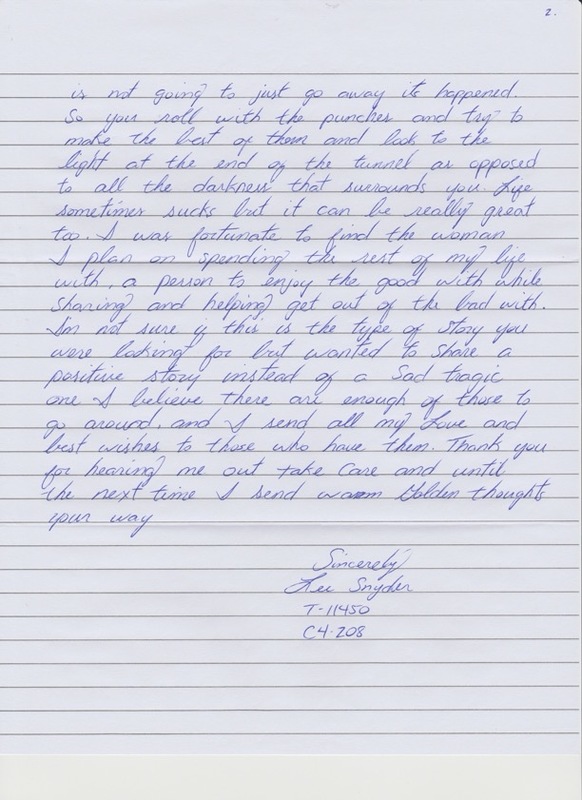 2.
is not going to just go away its happened.
So you roll with the punches and try to
make the best of them and look to the
light at the end of the tunnel as opposed
to all the darkness that surrounds you. Life
sometimes sucks but it can be really great
too. I was fortunate to find the woman
I plan on spending the rest of my life
with, a person to enjoy the good with while
sharing and helping get out of the bad with.
Im not sure if this is the type of story you
were looking for but wanted to share a
positive story instead of a sad tragic
one I believe there are enough of those to
go around, and I send all my Love and
best wishes to those who have them. Thank you
for hearing me out take care and until
the next time I send warm Golden thoughts
your way
Sincerely
Lee Snyder
T-11450
C4-208